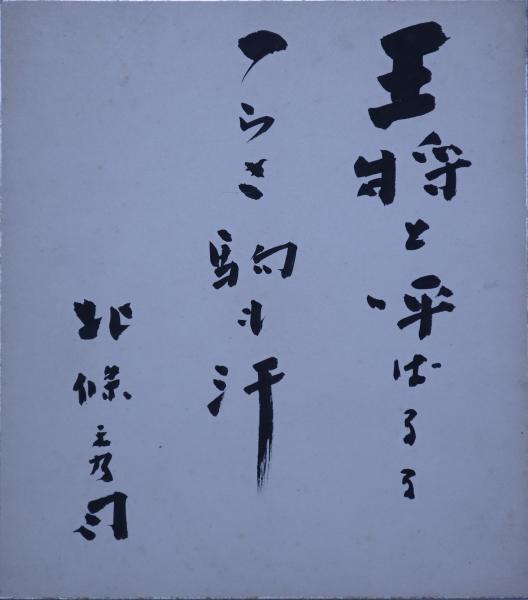 王将と呼ばるる
つらさ駒 汗
北條秀司